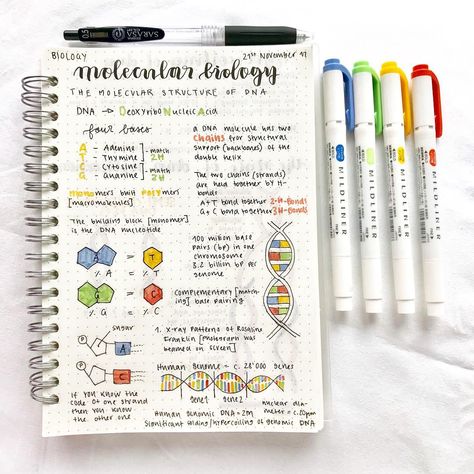 0.5 SARASA
BIOLOGY
21st November '17
molecular biology
THE MOLECULAR STRUCTURE OF DNA
DNA → Deoxyribo Nucleic Acid
four bases
A - Adenine
T - Thymine
C - Cytosine
G - Guanine
match 2H
match 3H
monomers built polymers
[macromolecules]
The building block [monomer]
is the DNA nucleotide
A DNA molecule has two
chains for structural
support (backbones) of the
double helix
The two chains (strands)
are held together by H-
bonds
A+T bond together 2-H-Bonds
G+C bond together 3H-Bonds
A = T
% A = % T
G = C
% G = % C
100 million base
pairs (bp) in one
chromosome
3.2 billion bp per
genome
Complementary [match-
ing] base pairing
sugar
A
C
If you know the
code of one strand
then you know
the other one.
1. X-ray patterns of Rosalind
Franklin [photograph was
beamed on screen]
Human Genome ~ c. 28'000 genes
gene1 gene2
Human genomic DNA = 2m
nuclear dia-
meter = c. 10µm
Significant folding/hypercoiling of genomic DNA
MILDLINER
MILDLINER
MILDLINER
MILDLINER